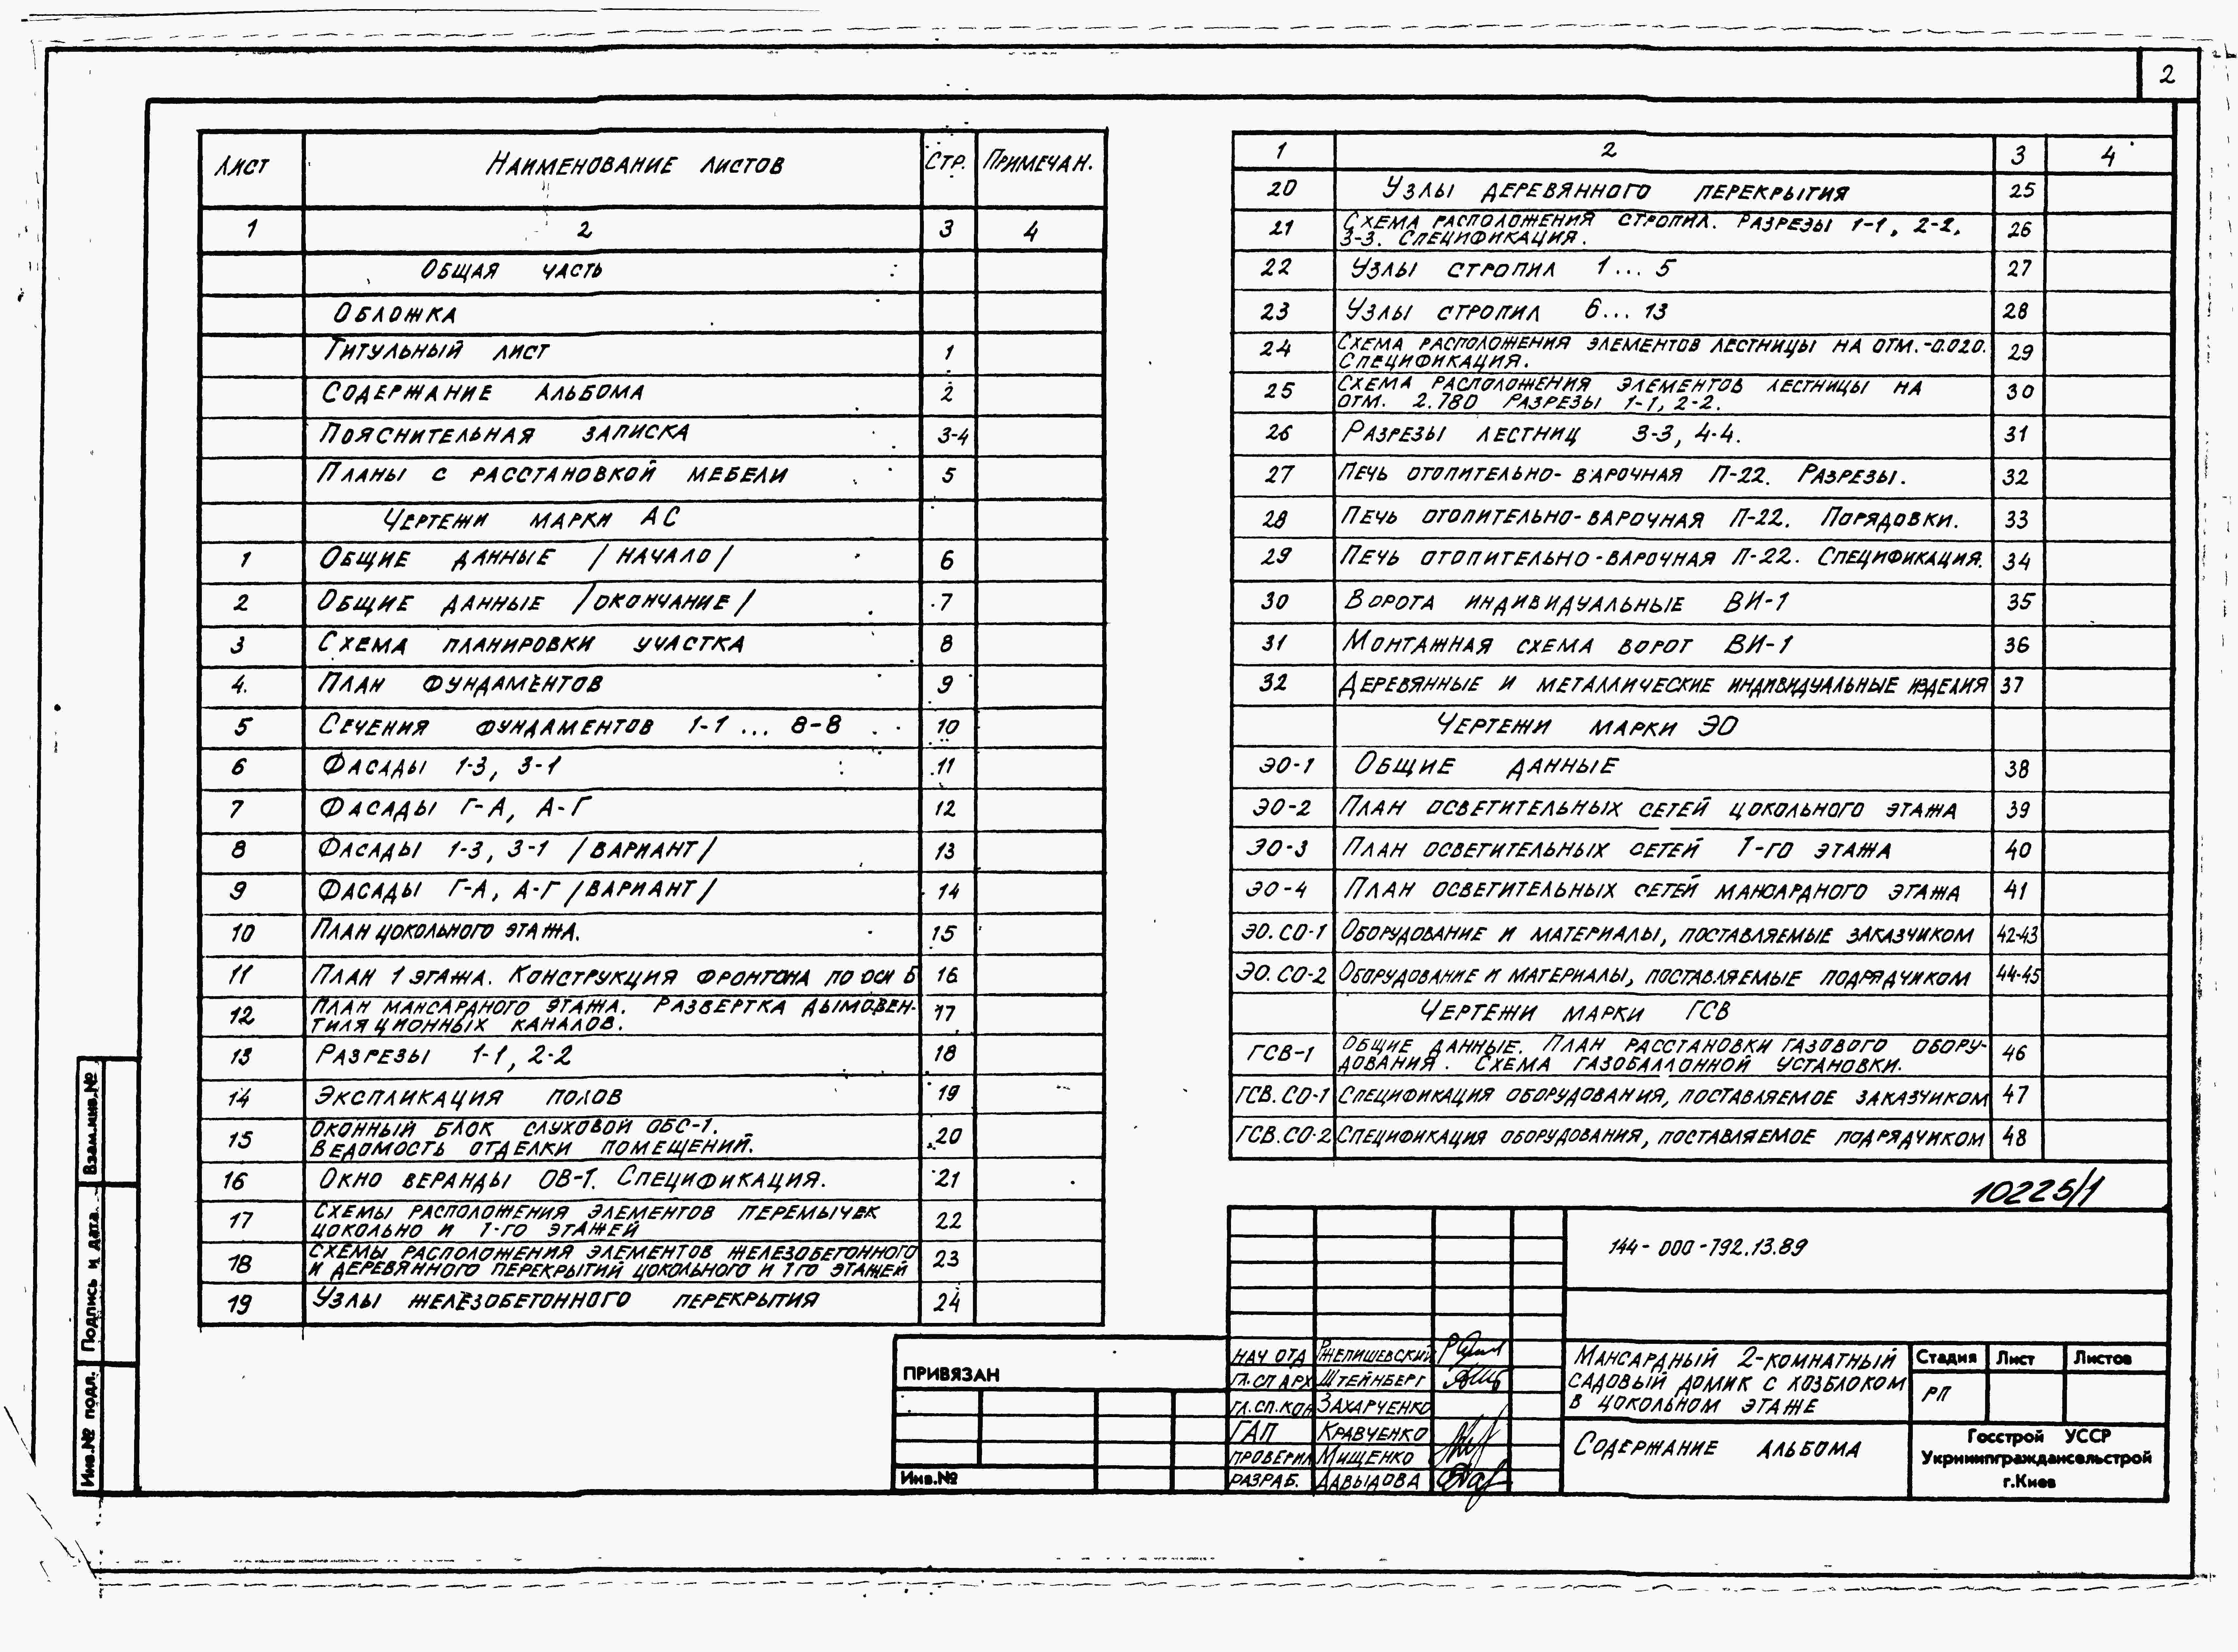 2
Лист Наименование листов Стр. Примечан.
1 2 3 4
Общая часть
Обложка
Титульный лист 1
Содержание альбома 2
Пояснительная записка 3-4
Планы с расстановкой мебели 5
Чертежи марки АС
1 Общие данные /начало/ 6
2 Общие данные /окончание/ 7
3 Схема планировки участка 8
4. План фундаментов 9
5 Сечения фундаментов 1-1 ... 8-8 10
6 Фасады 1-3, 3-1 11
7 Фасады Г-А, А-Г 12
8 Фасады 1-3, 3-1 /вариант/ 13
9 Фасады Г-А, А-Г /вариант/ 14
10 План цокольного этажа. 15
11 План 1 этажа. Конструкция фронтона по оси Б 16
12 План мансардного этажа. Развертка дымовен-
тиляционных каналов. 17
13 Разрезы 1-1, 2-2 18
14 Экспликация полов 19
15 Оконный блок слуховой ОБС-1.
Ведомость отделки помещений. 20
16 Окно веранды ОВ-1. Спецификация. 21
17 Схемы расположения элементов перемычек
цокольно и 1-го этажей 22
18 Схемы расположения элементов железобетонного
и деревянного перекрытий цокольного и 1го этажей 23
19 Узлы железобетонного перекрытия 24
1 2 3 4
20 Узлы деревянного перекрытия 25
21 Схема расположения стропил. Разрезы 1-1, 2-2,
3-3. Спецификация. 26
22 Узлы стропил 1... 5 27
23 Узлы стропил 6... 13 28
24 Схема расположения элементов лестницы на отм. -0.020.
Спецификация. 29
25 Схема расположения элементов лестницы на
отм. 2.780 Разрезы 1-1, 2-2. 30
26 Разрезы лестниц 3-3, 4-4. 31
27 Печь отопительно-варочная П-22. Разрезы. 32
28 Печь отопительно-варочная П-22. Порядовки. 33
29 Печь отопительно-варочная П-22. Спецификация. 34
30 Ворота индивидуальные ВИ-1 35
31 Монтажная схема ворот ВИ-1 36
32 Деревянные и металлические индивидуальные изделия 37
Чертежи марки ЭО
ЭО-1 Общие данные 38
ЭО-2 План осветительных сетей цокольного этажа 39
ЭО-3 План осветительных сетей 1-го этажа 40
ЭО-4 План осветительных сетей мансардного этажа 41
ЭО.СО-1 Оборудование и материалы, поставляемые заказчиком 42-43
ЭО.СО-2 Оборудование и материалы, поставляемые подрядчиком 44-45
Чертежи марки ГСВ
ГСВ-1 Общие данные. План расстановки газового обору-
дования. Схема газобаллонной установки. 46
ГСВ.СО-1 Спецификация оборудования, поставляемое заказчиком 47
ГСВ.СО-2 Спецификация оборудования, поставляемое подрядчиком 48
10225/1
144-000-792.13.89
Привязан
Инв.№
Нач отд Ржепишевский
Гл.сп арх Штейнберг
Гл.сп.кон Захарченко
ГАП Кравченко
Проверил Мищенко
Разраб. Давыдова
Мансардный 2-комнатный
садовый домик с хозблоком
в цокольном этаже
Содержание альбома
Стадия Лист Листов
РП
Госстрой УССР
Укрниипграждансельстрой
г.Киев
Взам.инв.№
Подпись и дата
Инв.№ подл.